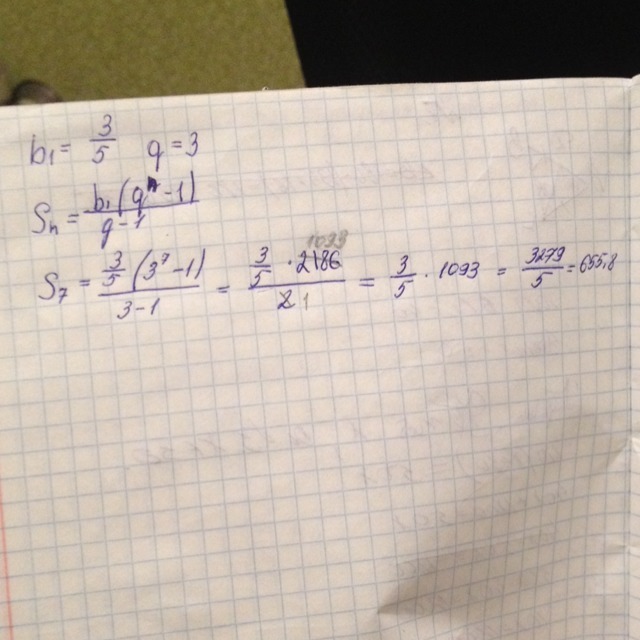 b₁ = 3/5 q = 3
Sₙ = b₁(qⁿ - 1) / q - 1
S₇ = 3/5 (3⁷ - 1) / 3 - 1 = 3/5 · 2186 1093 / 2 1 = 3/5 · 1093 = 3279/5 = 655,8